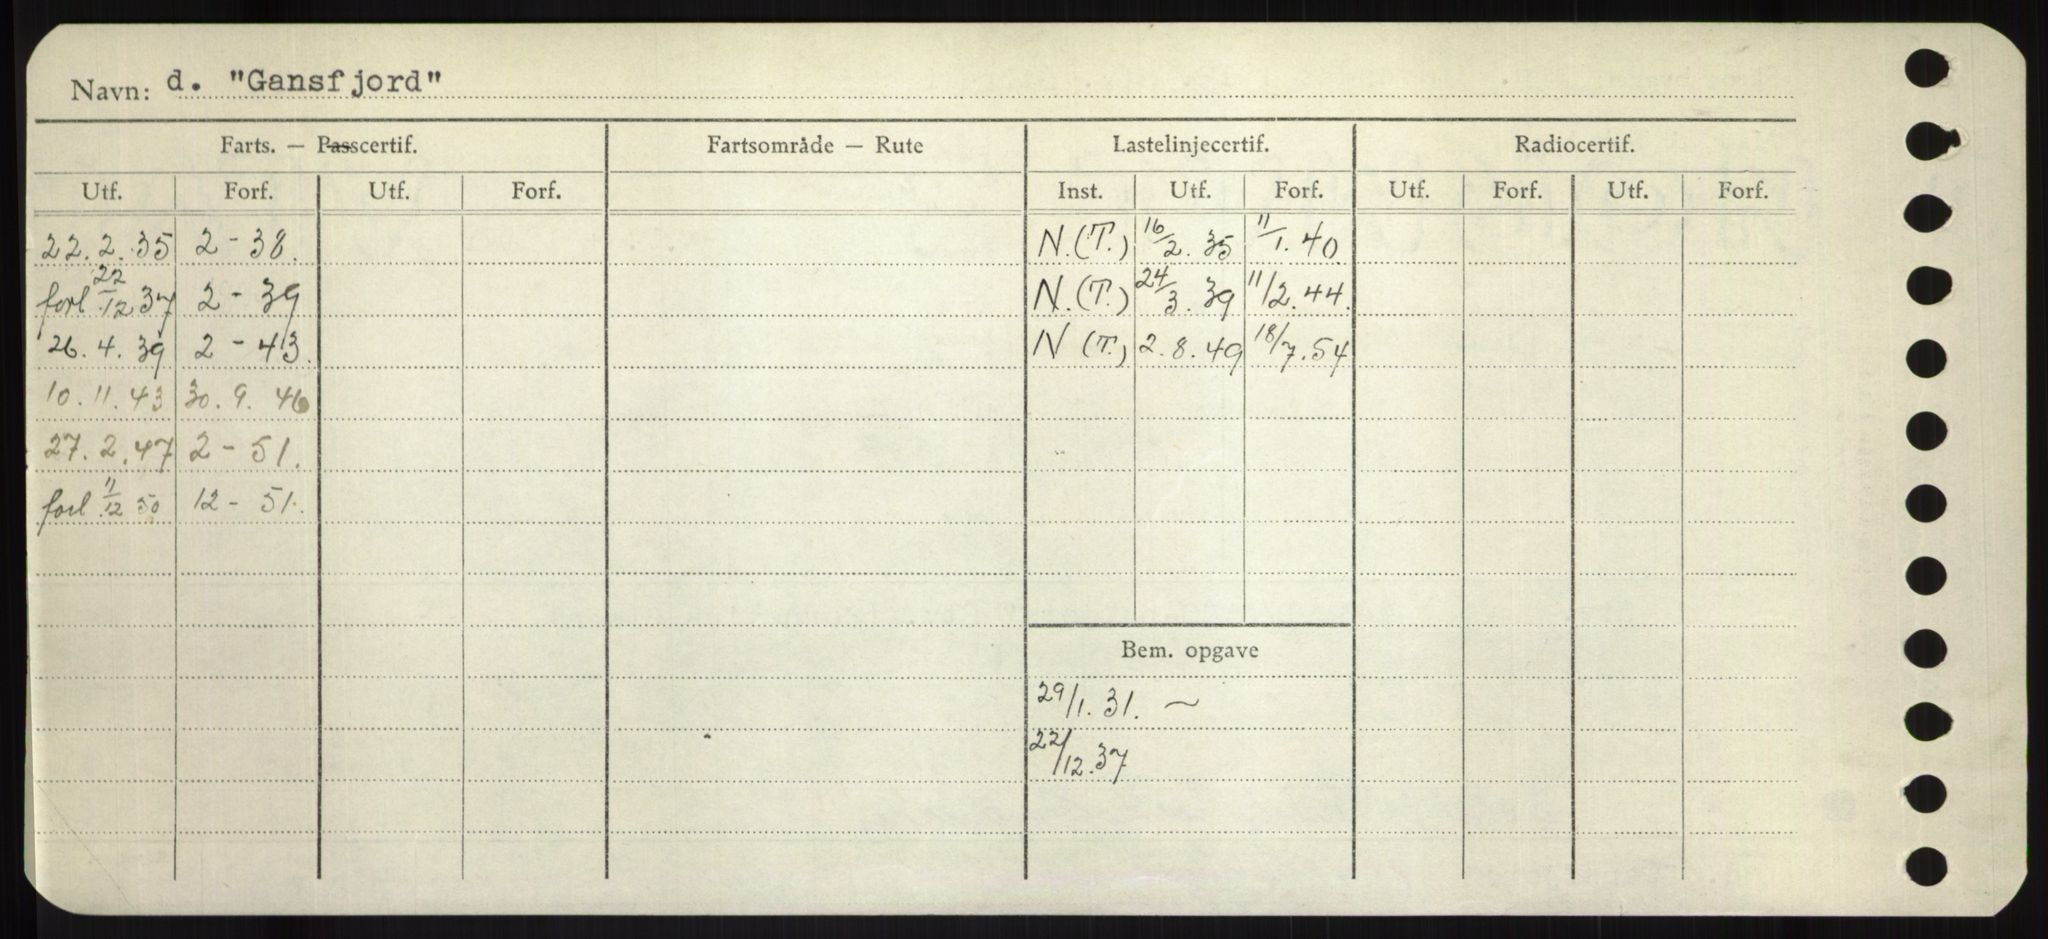 Navn: d. "Gansfjord"
Farts. — Passcertif. Fartsområde — Rute Lastelinjecertif. Radiocertif.
Utf. Forf. Utf. Forf. Inst. Utf. Forf. Utf. Forf. Utf. Forf.
22.2.35 2-38. N.(T.) 16/2.35 11/1.40
forl 22/12 37 2-39 N.(T.) 24/3.39 11/2.44.
26.4.39 2-43. N (T.) 2.8.49 18/7.54
10.11.43 30.9.46
27.2.47 2-51.
forl 11/12 50 12-51.
Bem. opgave
29/1.31. ~
22/12.37